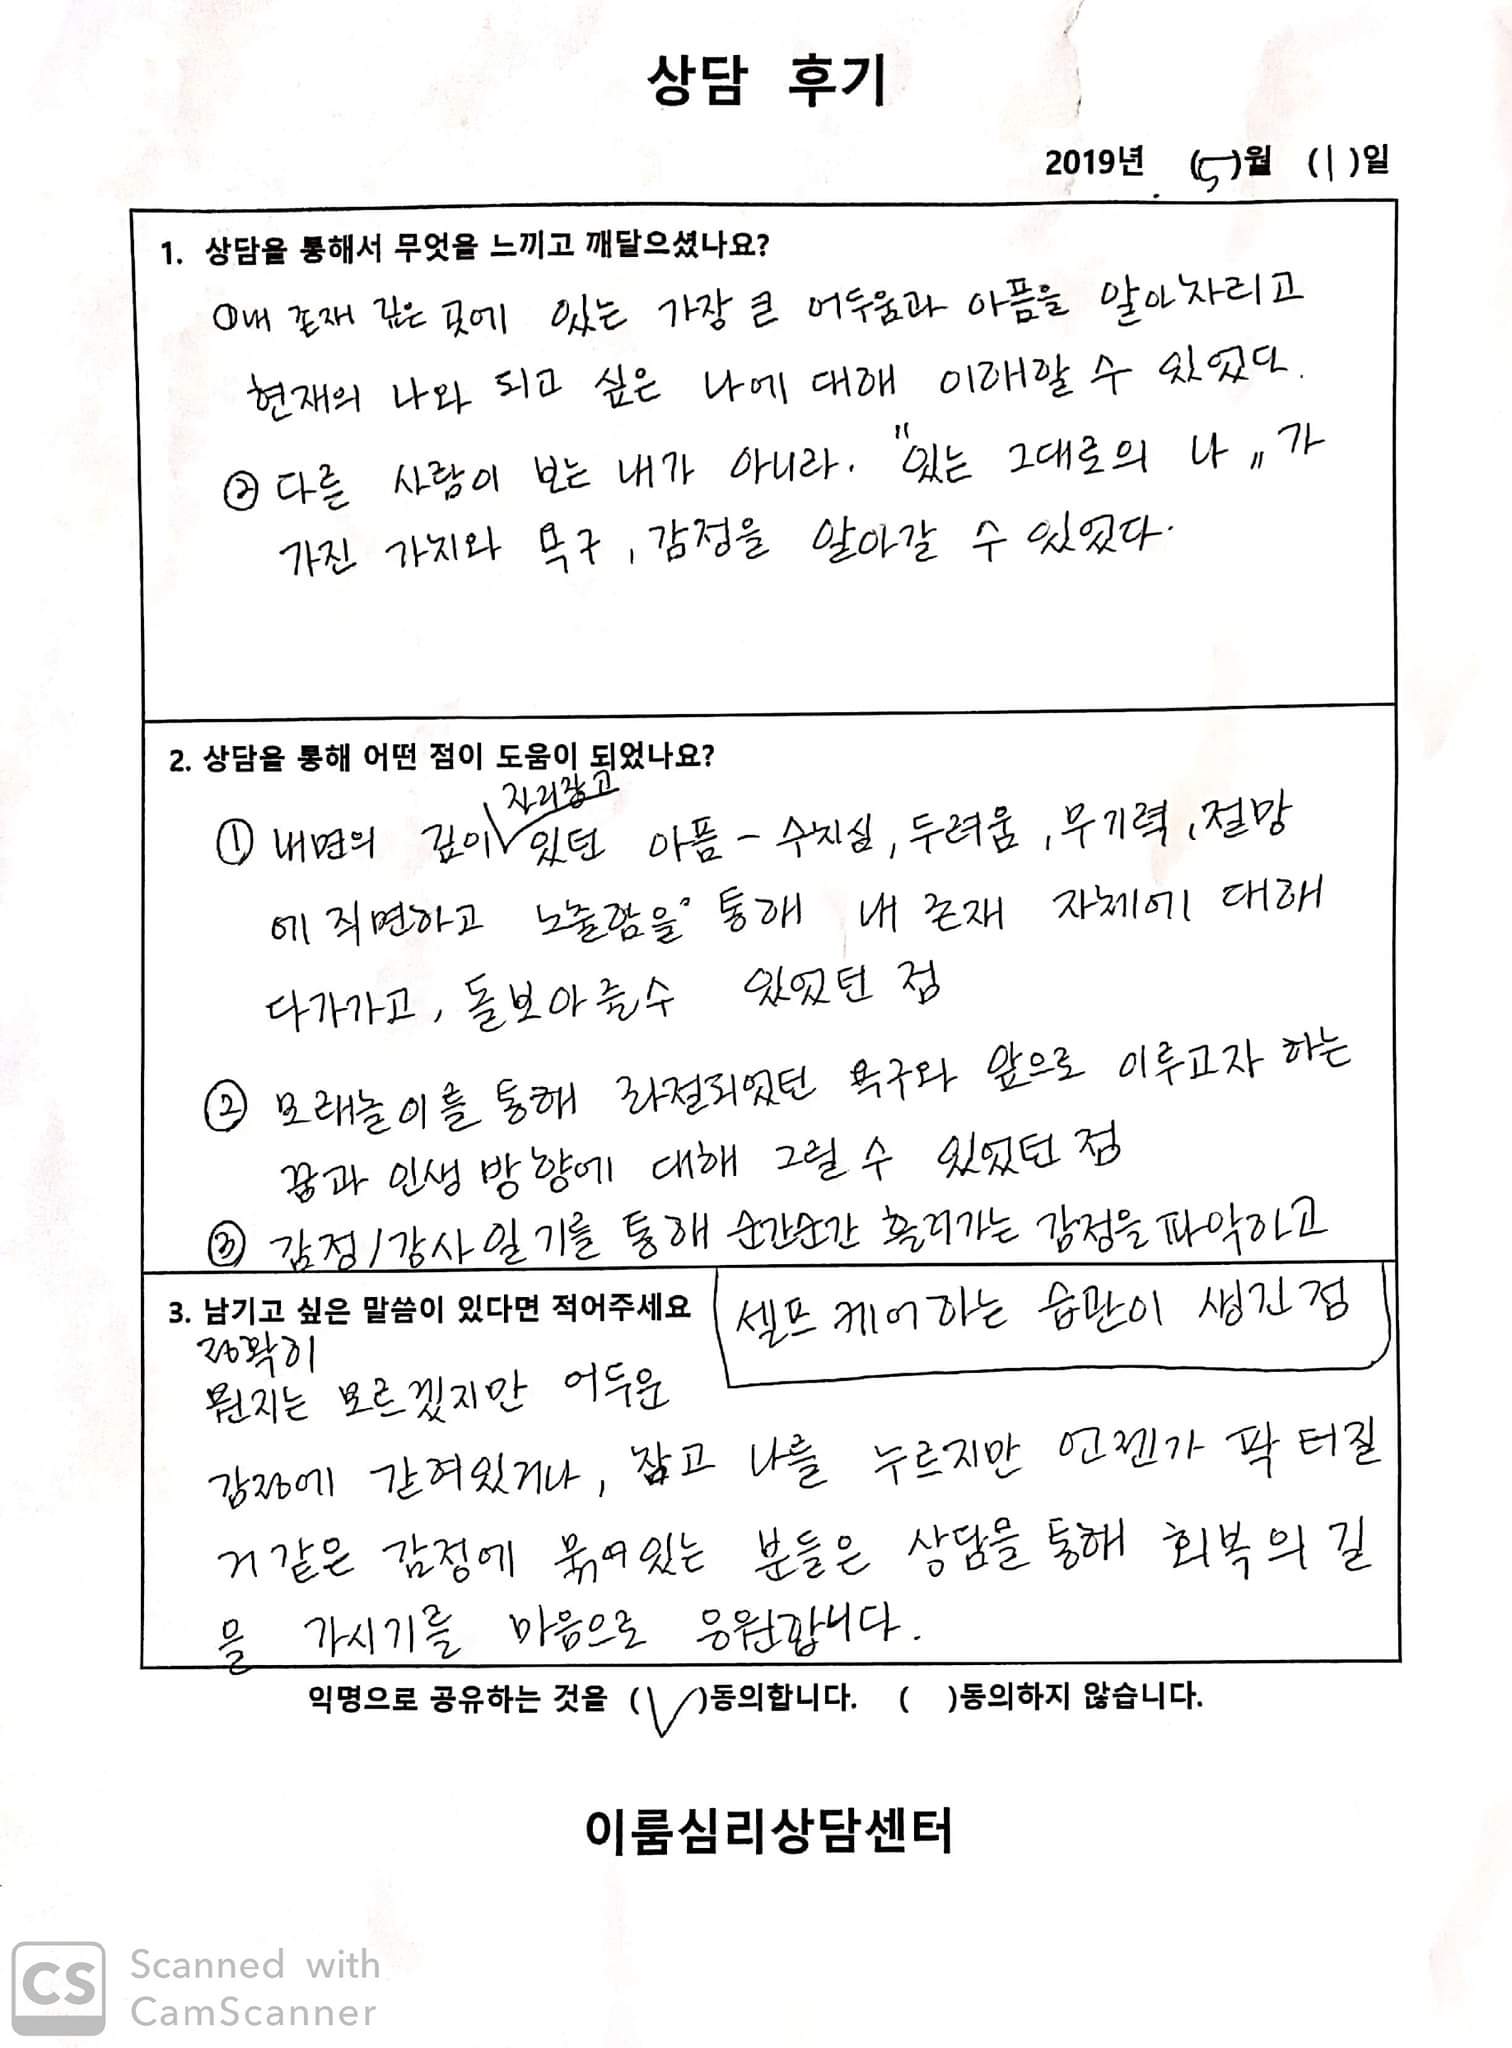 상담 후기
2019년 (5)월 (1)일
1. 상담을 통해서 무엇을 느끼고 깨달으셨나요?
① 내 존재 깊은 곳에 있는 가장 큰 어두움과 아픔을 알아차리고
현재의 나와 되고 싶은 나에 대해 이해할 수 있었다.
② 다른 사람이 보는 내가 아니라. "있는 그대로의 나"가
가진 가치와 욕구, 감정을 알아갈 수 있었다.
2. 상담을 통해 어떤 점이 도움이 되었나요?
자리잡고
① 내면의 깊이 있던 아픔 - 수치심, 두려움, 무기력, 절망
에 직면하고 노출함을 통해 내 존재 자체에 대해
다가가고, 돌보아줄수 있었던 점
② 모래놀이를 통해 좌절되었던 욕구와 앞으로 이루고자 하는
꿈과 인생 방향에 대해 그릴 수 있었던 점
③ 감정/감사일기를 통해 순간순간 흘러가는 감정을 파악하고
셀프 케어하는 습관이 생긴 점
3. 남기고 싶은 말씀이 있다면 적어주세요
정확히
뭔지는 모르겠지만 어두운
감정에 갇혀있거나, 참고 나를 누르지만 언젠가 팍 터질
거 같은 감정에 묶여있는 분들은 상담을 통해 회복의 길
을 가시기를 마음으로 응원합니다.
익명으로 공유하는 것을 (✓)동의합니다. ( )동의하지 않습니다.
이룸심리상담센터
CS
Scanned with
CamScanner